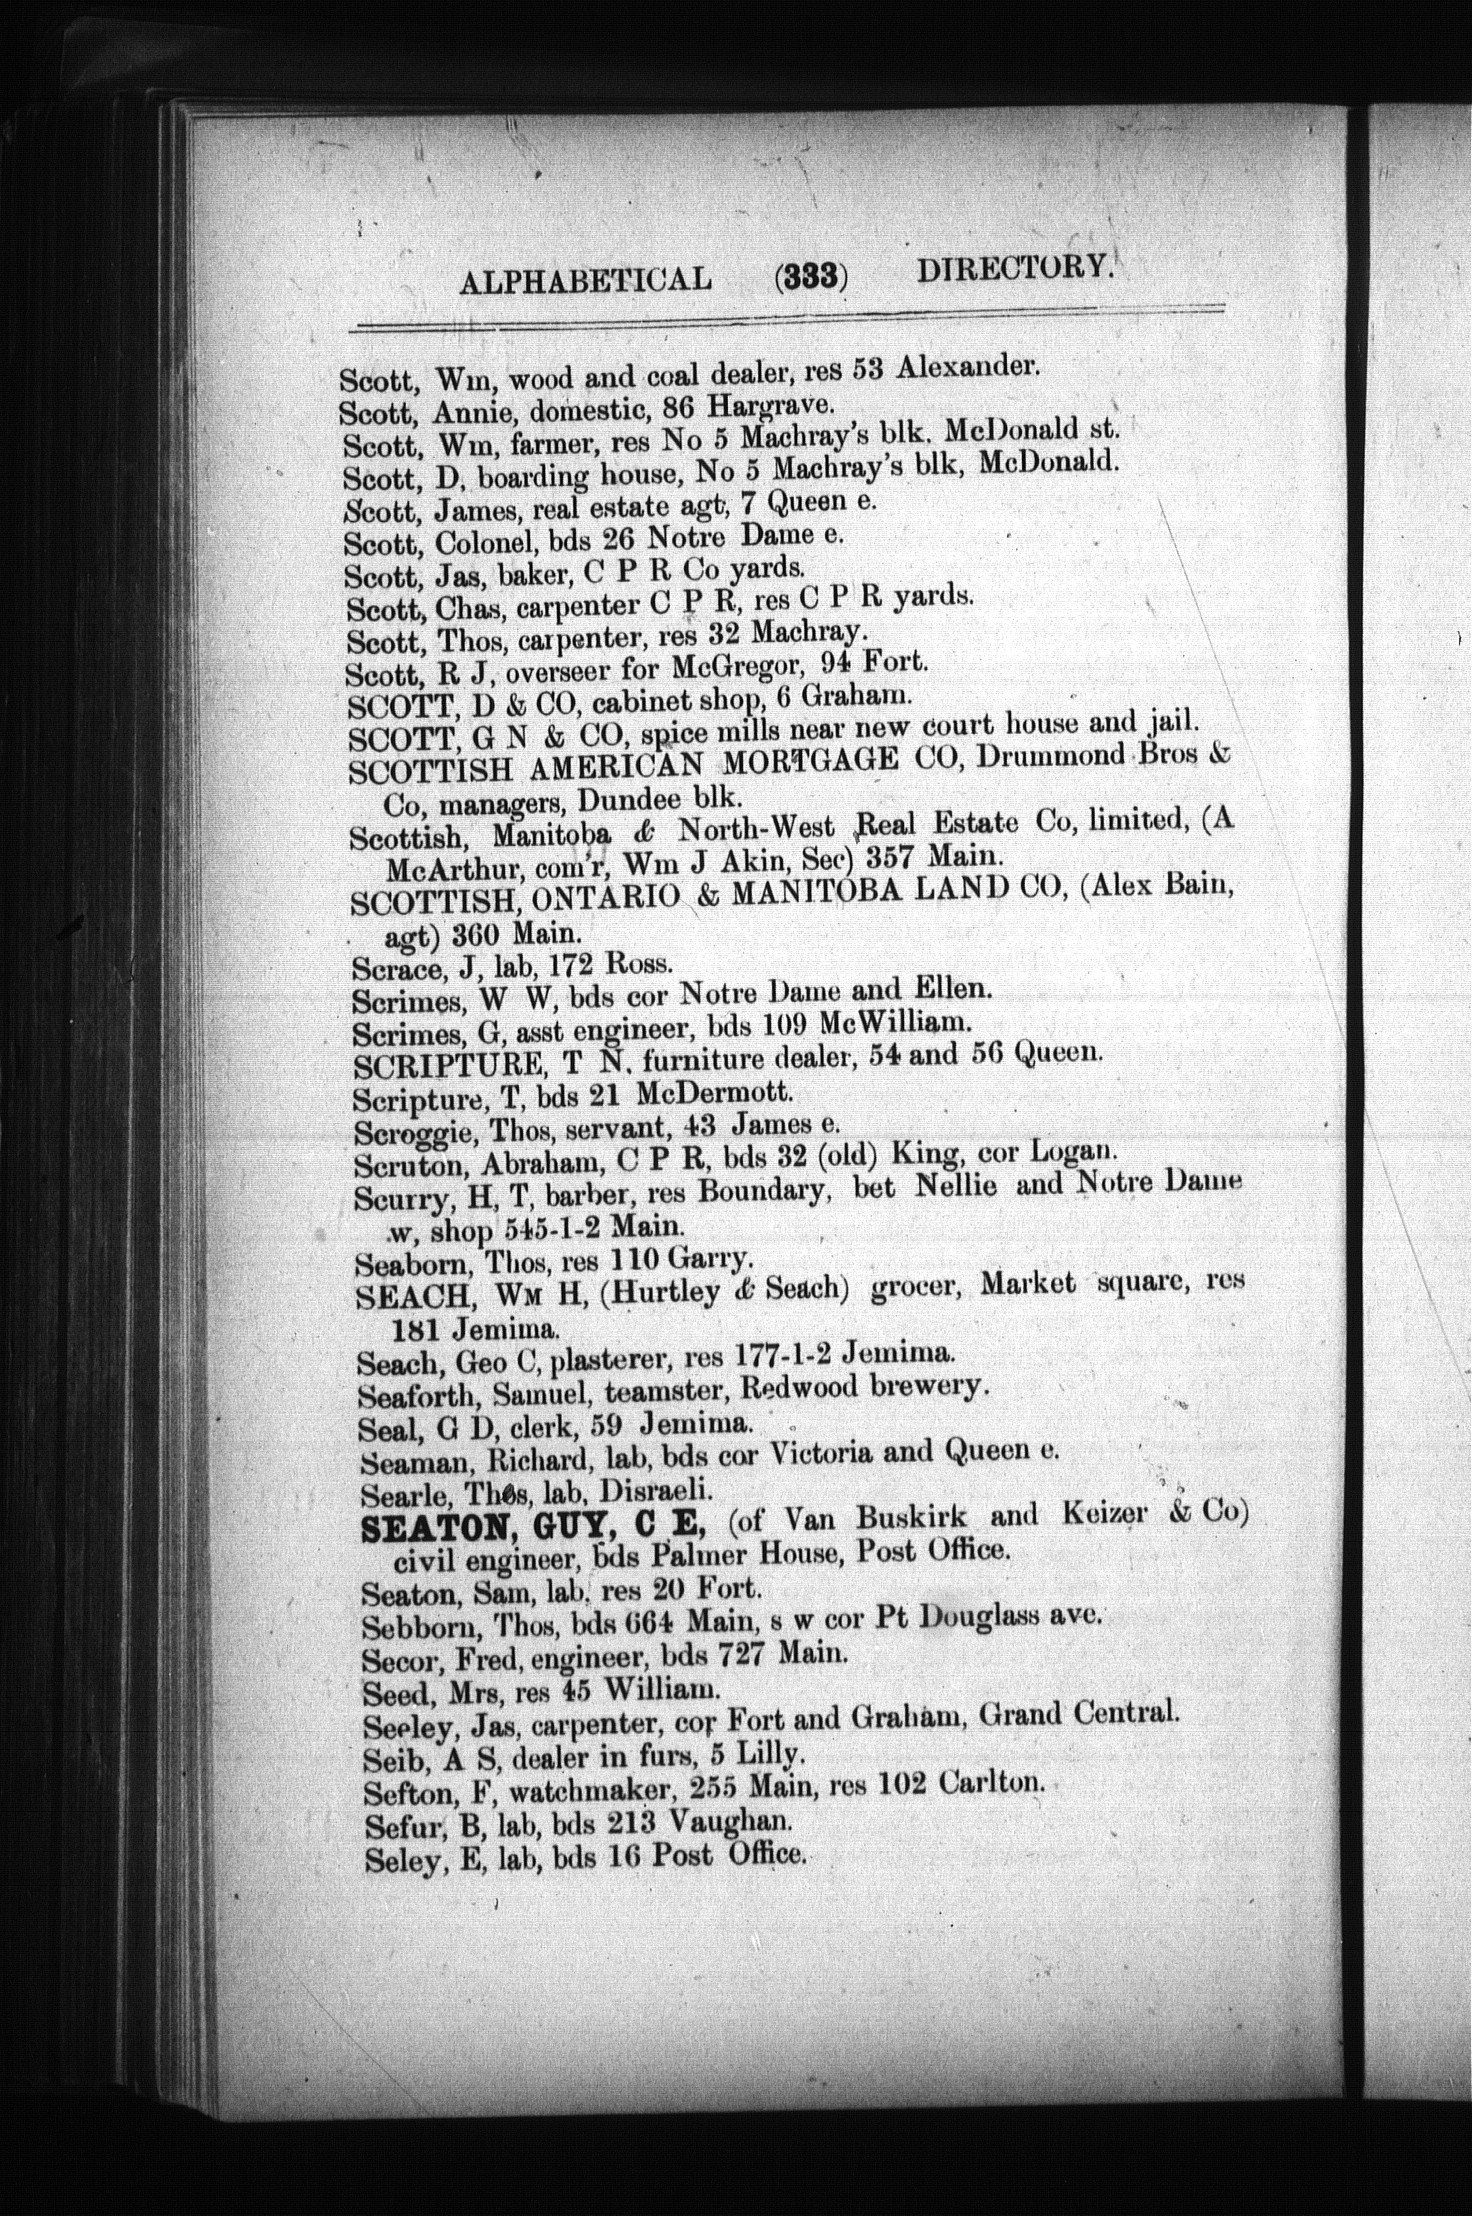 ALPHABETICAL (333) DIRECTORY.
Scott, Wm, wood and coal dealer, res 53 Alexander.
Scott, Annie, domestic, 86 Hargrave.
Scott, Wm, farmer, res No 5 Machray's blk. McDonald st.
Scott, D, boarding house, No 5 Machray's blk, McDonald.
Scott, James, real estate agt, 7 Queen e.
Scott, Colonel, bds 26 Notre Dame e.
Scott, Jas, baker, C P R Co yards.
Scott, Chas, carpenter C P R, res C P R yards.
Scott, Thos, carpenter, res 32 Machray.
Scott, R J, overseer for McGregor, 94 Fort.
SCOTT, D & CO, cabinet shop, 6 Graham.
SCOTT, G N & CO, spice mills near new court house and jail.
SCOTTISH AMERICAN MORTGAGE CO, Drummond Bros &
Co, managers, Dundee blk.
Scottish, Manitoba & North-West Real Estate Co, limited, (A
McArthur, com'r, Wm J Akin, Sec) 357 Main.
SCOTTISH, ONTARIO & MANITOBA LAND CO, (Alex Bain,
agt) 360 Main.
Scrace, J, lab, 172 Ross.
Scrimes, W W, bds cor Notre Dame and Ellen.
Scrimes, G, asst engineer, bds 109 McWilliam.
SCRIPTURE, T N. furniture dealer, 54 and 56 Queen.
Scripture, T, bds 21 McDermott.
Scroggie, Thos, servant, 43 James e.
Scruton, Abraham, C P R, bds 32 (old) King, cor Logan.
Scurry, H, T, barber, res Boundary, bet Nellie and Notre Dame
w, shop 545-1-2 Main.
Seaborn, Thos, res 110 Garry.
SEACH, WM H, (Hurtley & Seach) grocer, Market square, res
181 Jemima.
Seach, Geo C, plasterer, res 177-1-2 Jemima.
Seaforth, Samuel, teamster, Redwood brewery.
Seal, G D, clerk, 59 Jemima.
Seaman, Richard, lab, bds cor Victoria and Queen e.
Searle, Thos, lab, Disraeli.
SEATON, GUY, C E, (of Van Buskirk and Keizer & Co)
civil engineer, bds Palmer House, Post Office.
Seaton, Sam, lab, res 20 Fort.
Sebborn, Thos, bds 664 Main, s w cor Pt Douglass ave.
Secor, Fred, engineer, bds 727 Main.
Seed, Mrs, res 45 William.
Seeley, Jas, carpenter, cor Fort and Graham, Grand Central.
Seib, A S, dealer in furs, 5 Lilly.
Sefton, F, watchmaker, 255 Main, res 102 Carlton.
Sefur, B, lab, bds 213 Vaughan.
Seley, E, lab, bds 16 Post Office.